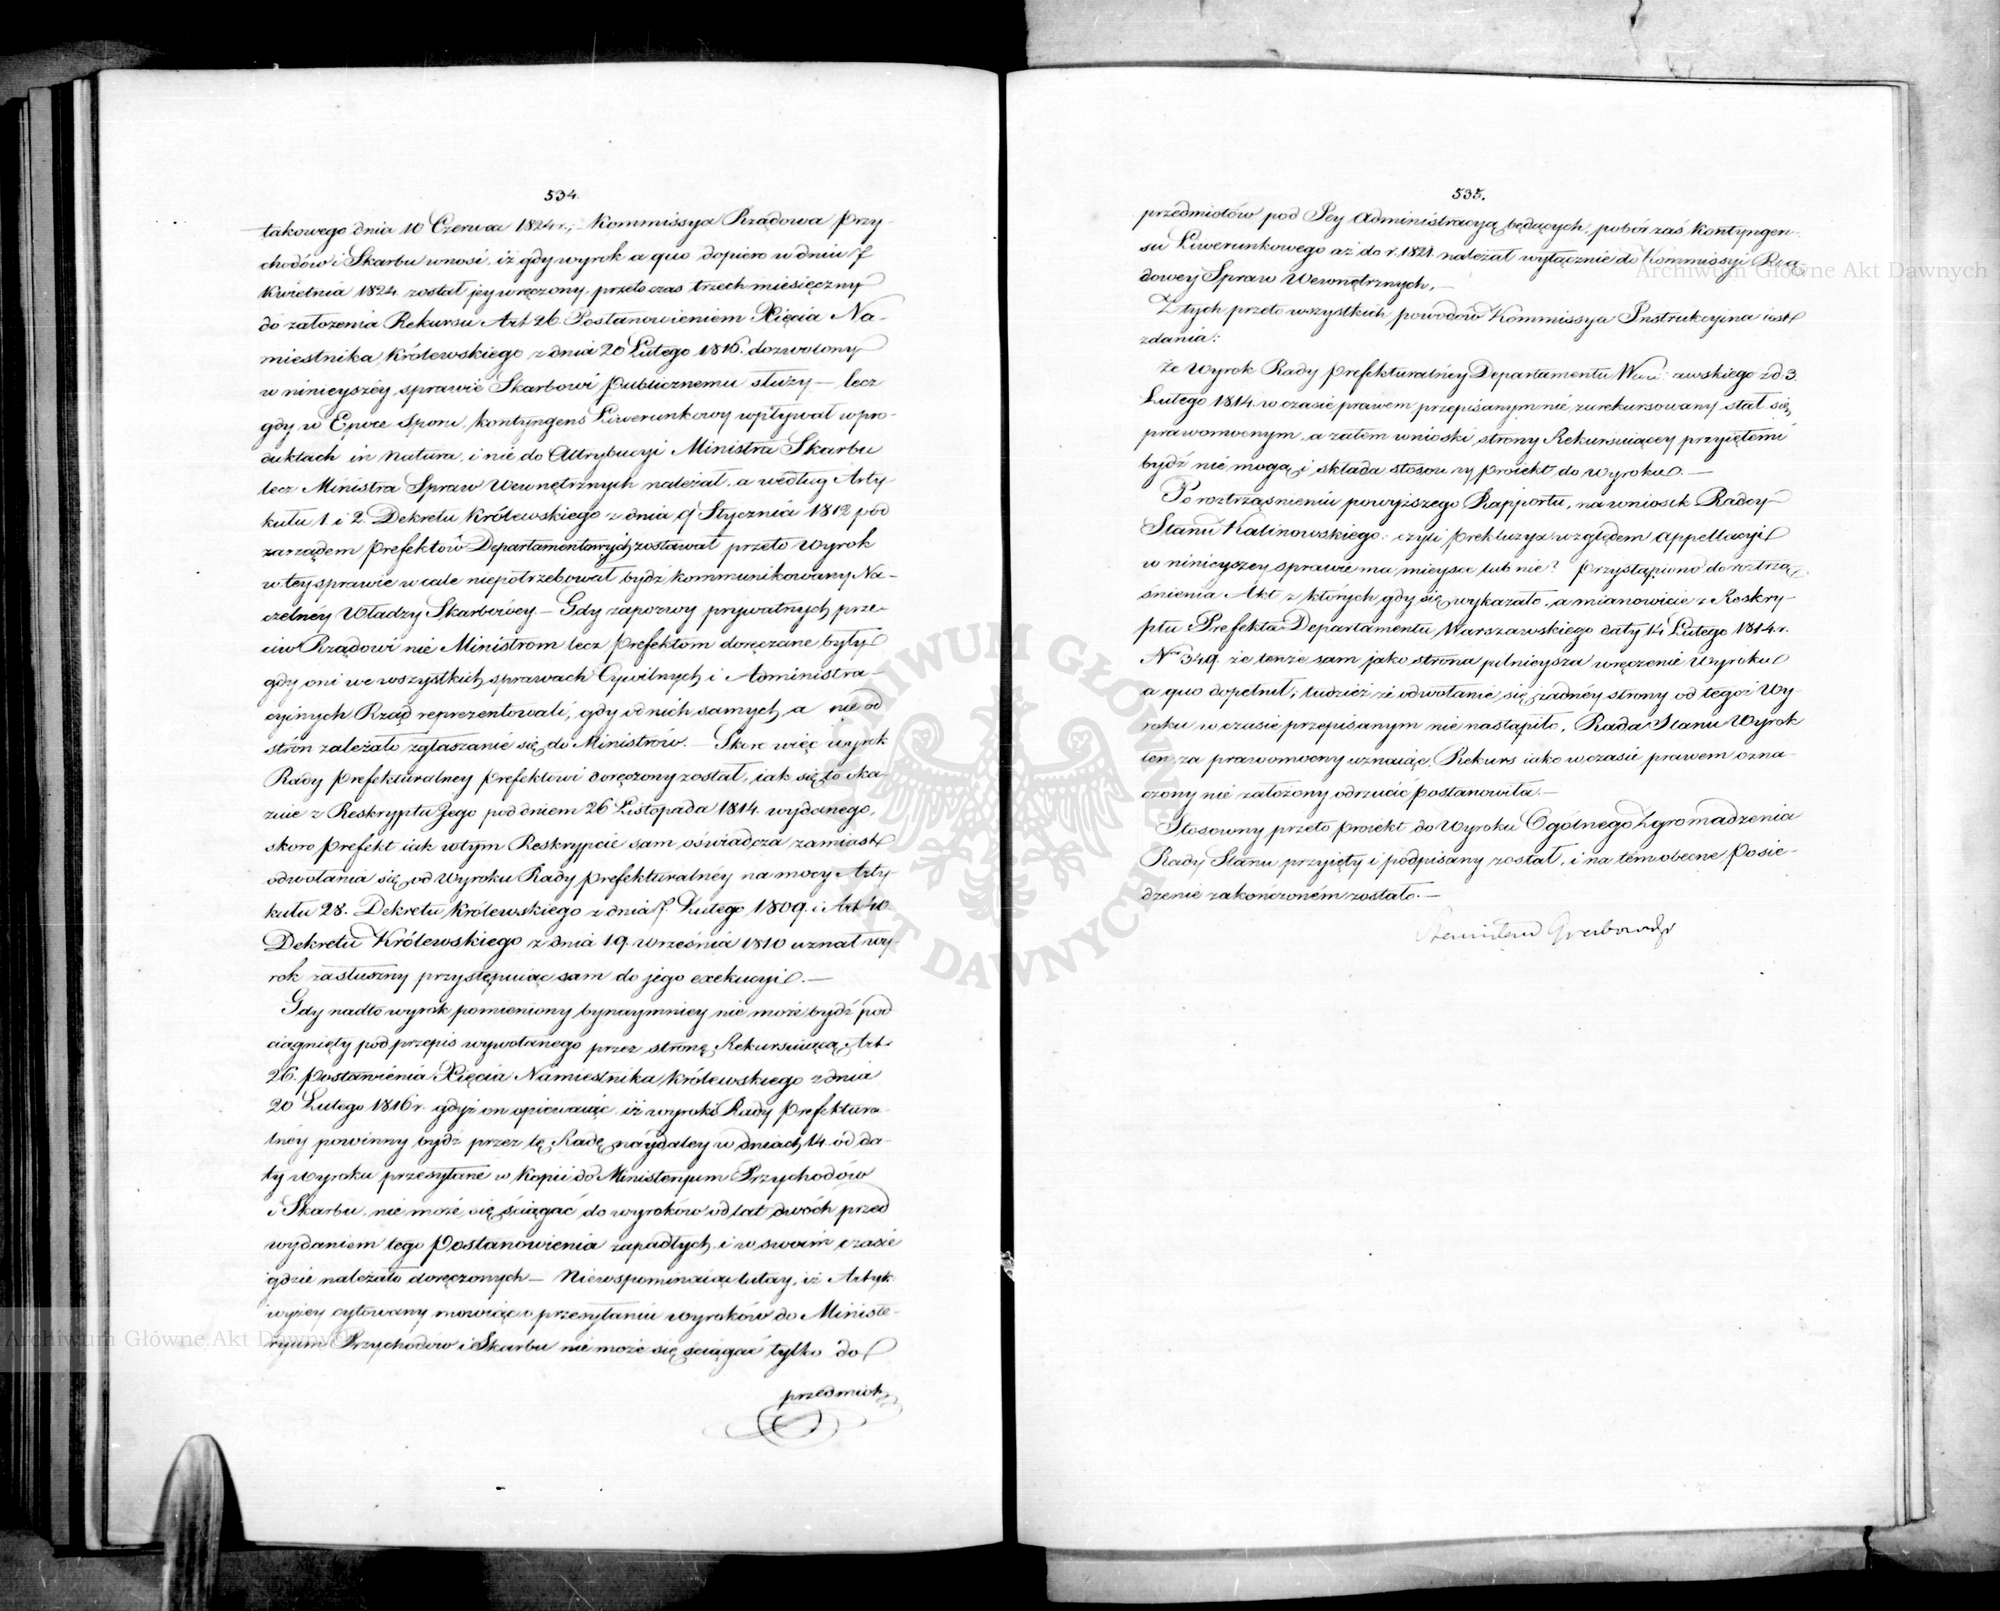 534.
takowego dnia 10 Czerwca 1824 r., Kommissya Rządowa Przy-
chodów i Skarbu wnosi, iż gdy wyrok a quo dopiero w dniu 7
Kwietnia 1824 został jey wręczony, przeto czas trzech miesięczny
do założenia Rekursu Art 26. Postanowieniem Xięcia Na-
miestnika Królewskiego z dnia 20 Lutego 1816. dozwolony
w ninieyszéy sprawie Skarbowi Publicznemu służy — lecz
gdy w Epoce sporu, kontyngens Liwerunkowy wpływał w pro-
duktach in natura, i nie do Attrybucyi Ministra Skarbu
lecz Ministra Spraw Wewnętrznych należał, a według Arty-
kułu 1 i 2 Dekretu Królewskiego z dnia 9 Stycznia 1812 pod
zarządem Prefektów Departamentowych zostawał przeto Wyrok
w tey sprawie wcale niepotrzebował bydź kommunikowany Na-
czelney Władzy Skarbowey — Gdy zapozwy prywatnych prze-
ciw Rządowi nie Ministrom lecz Prefektom doręczane były
gdy oni we wszystkich sprawach Cywilnych i Administra-
cyinych Rząd reprezentowali, gdy od nich samych a nie od
stron zależało zgłaszanie się do Ministrów. — Skoro więc wyrok
Rady Prefekturalney Prefektowi doręczony został, iak się to oka-
zuie z Reskryptu Jego pod dniem 26 Listopada 1814. wydanego,
skoro Prefekt iak w tym Reskrypcie sam oświadcza zamiast
odwołania się od Wyroku Rady Prefekturalnéy na mocy Arty-
kułu 28. Dekretu Królewskiego z dnia 7. Lutego 1809. i Art 40.
Dekretu Królewskiego z dnia 19. września 1810 uznał wy-
rok za słuszny przystępuiąc sam do jego exekucyi. —
Gdy nadto wyrok pomieniony bynaymniey nie może bydź pod
ciągnięty pod przepis wywołanego przez stronę Rekursuiącą Art.
26. Postanowienia Xięcia Namiestnika Królewskiego z dnia
20 Lutego 1816 r. gdyż on opiewaiąc, iż wyroki Rady Prefektura-
lnéy powinny bydź przez tę Radę naydaley w dniach 14 od da-
ty wyroku przesyłane w kopii do Ministeryum Przychodów
i Skarbu, nie może się ściągać do wyroków od lat dwóch przed
wydaniem tego Postanowienia zapadłych i w swoim czasie
gdzie należało doręczonych — Niewspominaiąc tutay, iż Artyk:
wyżey cytowany mówiąc o przesyłaniu wyroków do Ministe-
ryum Przychodów i Skarbu nie może się ściągać tylko do
przedmiot
535.
przedmiotów pod Jey Administracyą będących, pobór zaś kontyngen-
su Liwerunkowego aż do r. 1821 należał wyłącznie do Kommissyi Rzą-
dowey Spraw Wewnętrznych. —
Z tych przeto wszystkich powodów Kommissya Instrukcyina iest
zdania:
że Wyrok Rady Prefekturalnéy Departamentu Warszawskiego z d. 3.
Lutego 1814. w czasie prawem przepisanym nie zarekursowany stał się
prawomocnym, a zatem wnioski strony Rekursuiącey przyiętemi
bydź nie mogą i składa stosowny proiekt do wyroku. —
Po roztrząśnieniu powyższego Rapportu, na wniosek Radcy
Stanu Kalinowskiego: czyli prekluzya względem appellacyi
w ninieyszey sprawie ma mieysce lub nie? przystąpiono do roztrzą-
śnienia Akt z których gdy się wykazało, a mianowicie z Reskry-
ptu Prefekta Departamentu Warszawskiego daty 14 Lutego 1814 r.
Nro 349. że tenże sam jako strona pilnieysza wręczenie Wyroku
a quo dopełnił, tudzież że odwołanie się żadnéy strony od tegoż Wy-
roku w czasie przepisanym nie nastąpiło, Rada Stanu Wyrok
ten za prawomocny uznaiąc, Rekurs iako w czasie prawem ozna-
czony nie założony odrzucić postanowiła. —
Stosowny przeto proiekt do Wyroku Ogólnego Zgromadzenia
Rady Stanu przyięty i podpisany został, i na tém obecne Posie-
dzenie zakończoném zostało. —
Stanisław Grabowski
ARCHIWUM GŁÓWNE AKT DAWNYCH
Archiwum Główne Akt Dawnych
Archiwum Główne Akt Dawnych